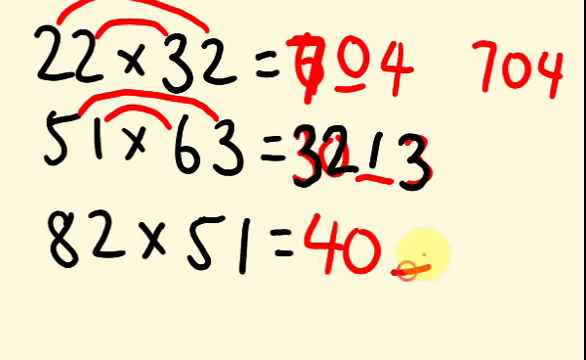 22 × 32 = 704 704
51 × 63 = 3213
82 × 51 = 40_